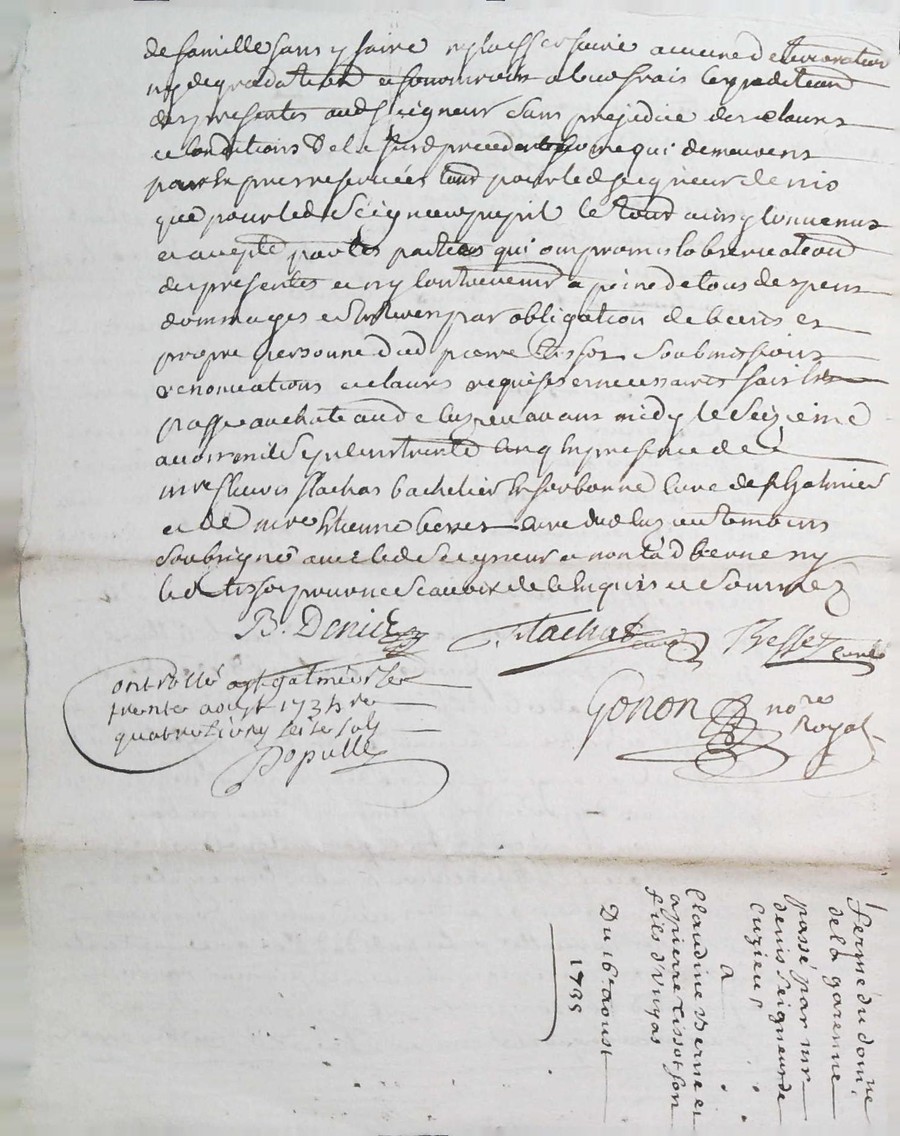 de famille sans y faire ny laisser faire aucune deterioration
ny degradation et fourniront a leurs frais lexpedition
des presentes aud seigneur sans prejudice des clauses
et conditions de la susd precedente ferme qui demeurent
par exprès reservées tant pour led seigneur denis
que pour led seigneur pupil le tout ainsy convenu
et accepté par les parties qui ont promis lobservation
des presentes et ny contrevenir a peine de tous depens
dommages et interets par obligation de biens et
propre personne dud pierre tissot soubmissions
renonciations et clauses requises et necessaires fait et
passé au chateau de cuzieu avant midy le seizieme
aoust mil sept cent trente cinq en presence de
mre stachas bachelier en sorbonne curé de st Galmier
et de mre Etienne besset curé dud cuzieu temoins
soubsignés avec led seigneur et non lad berne ny
led tissot pour ne scavoir de ce enquis et sommés
B. Denis Stachas curé Besset curé
Controllé a st galmier le
trente aoust 1735 re
quatre livres seize sols
Populle
Gonon nore
Royal
Ferme du domne
de la garenne
passé par sur
denis seigneur de
cuzieu
A
Claudine Berne et
a pierre tissot son
fils d'Unyas
Du 16e aoust
1735